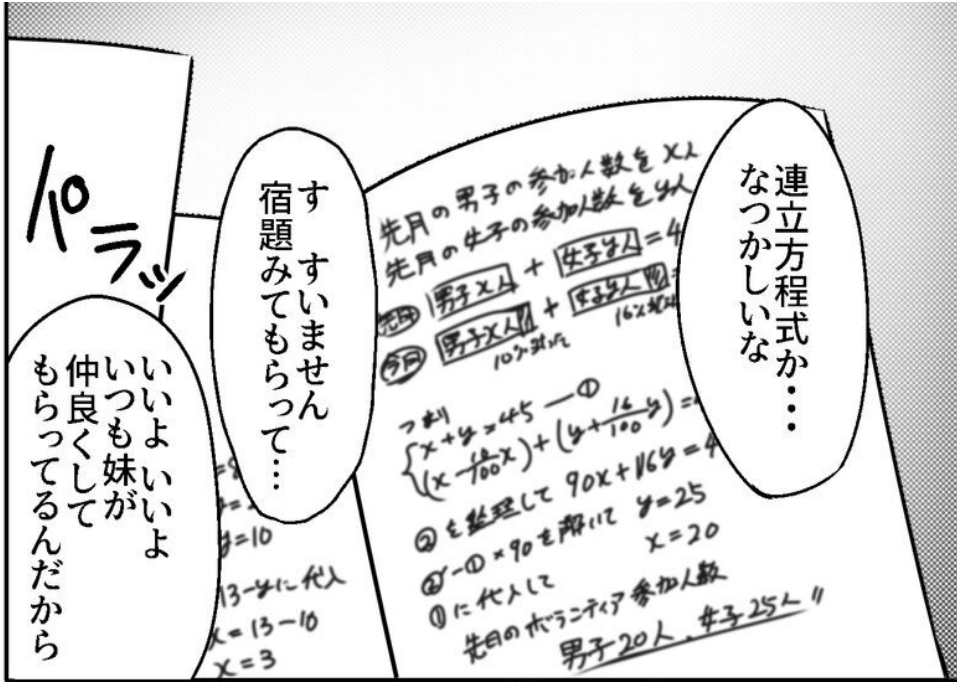 連立方程式か・・・
なつかしいな
す すいません
宿題みてもらって…
パラッ
いいよ いいよ
いつも妹が
仲良くして
もらってるんだから
先月の男子の参加人数をx人
先月の女子の参加人数をy人
先月 男子x人 + 女子y人 = 4
今月 男子x人 + 女子y人
10%減った
つまり
x+y=45 ―①
(x-10/100x)+(y+16/100y)=
②を整理して 90x+116y=4
②'-①×90を解いて y=25
x=20
①に代入して
先月のボランティア参加人数
男子20人、女子25人
y=10
13-yに代入
x=13-10
x=3